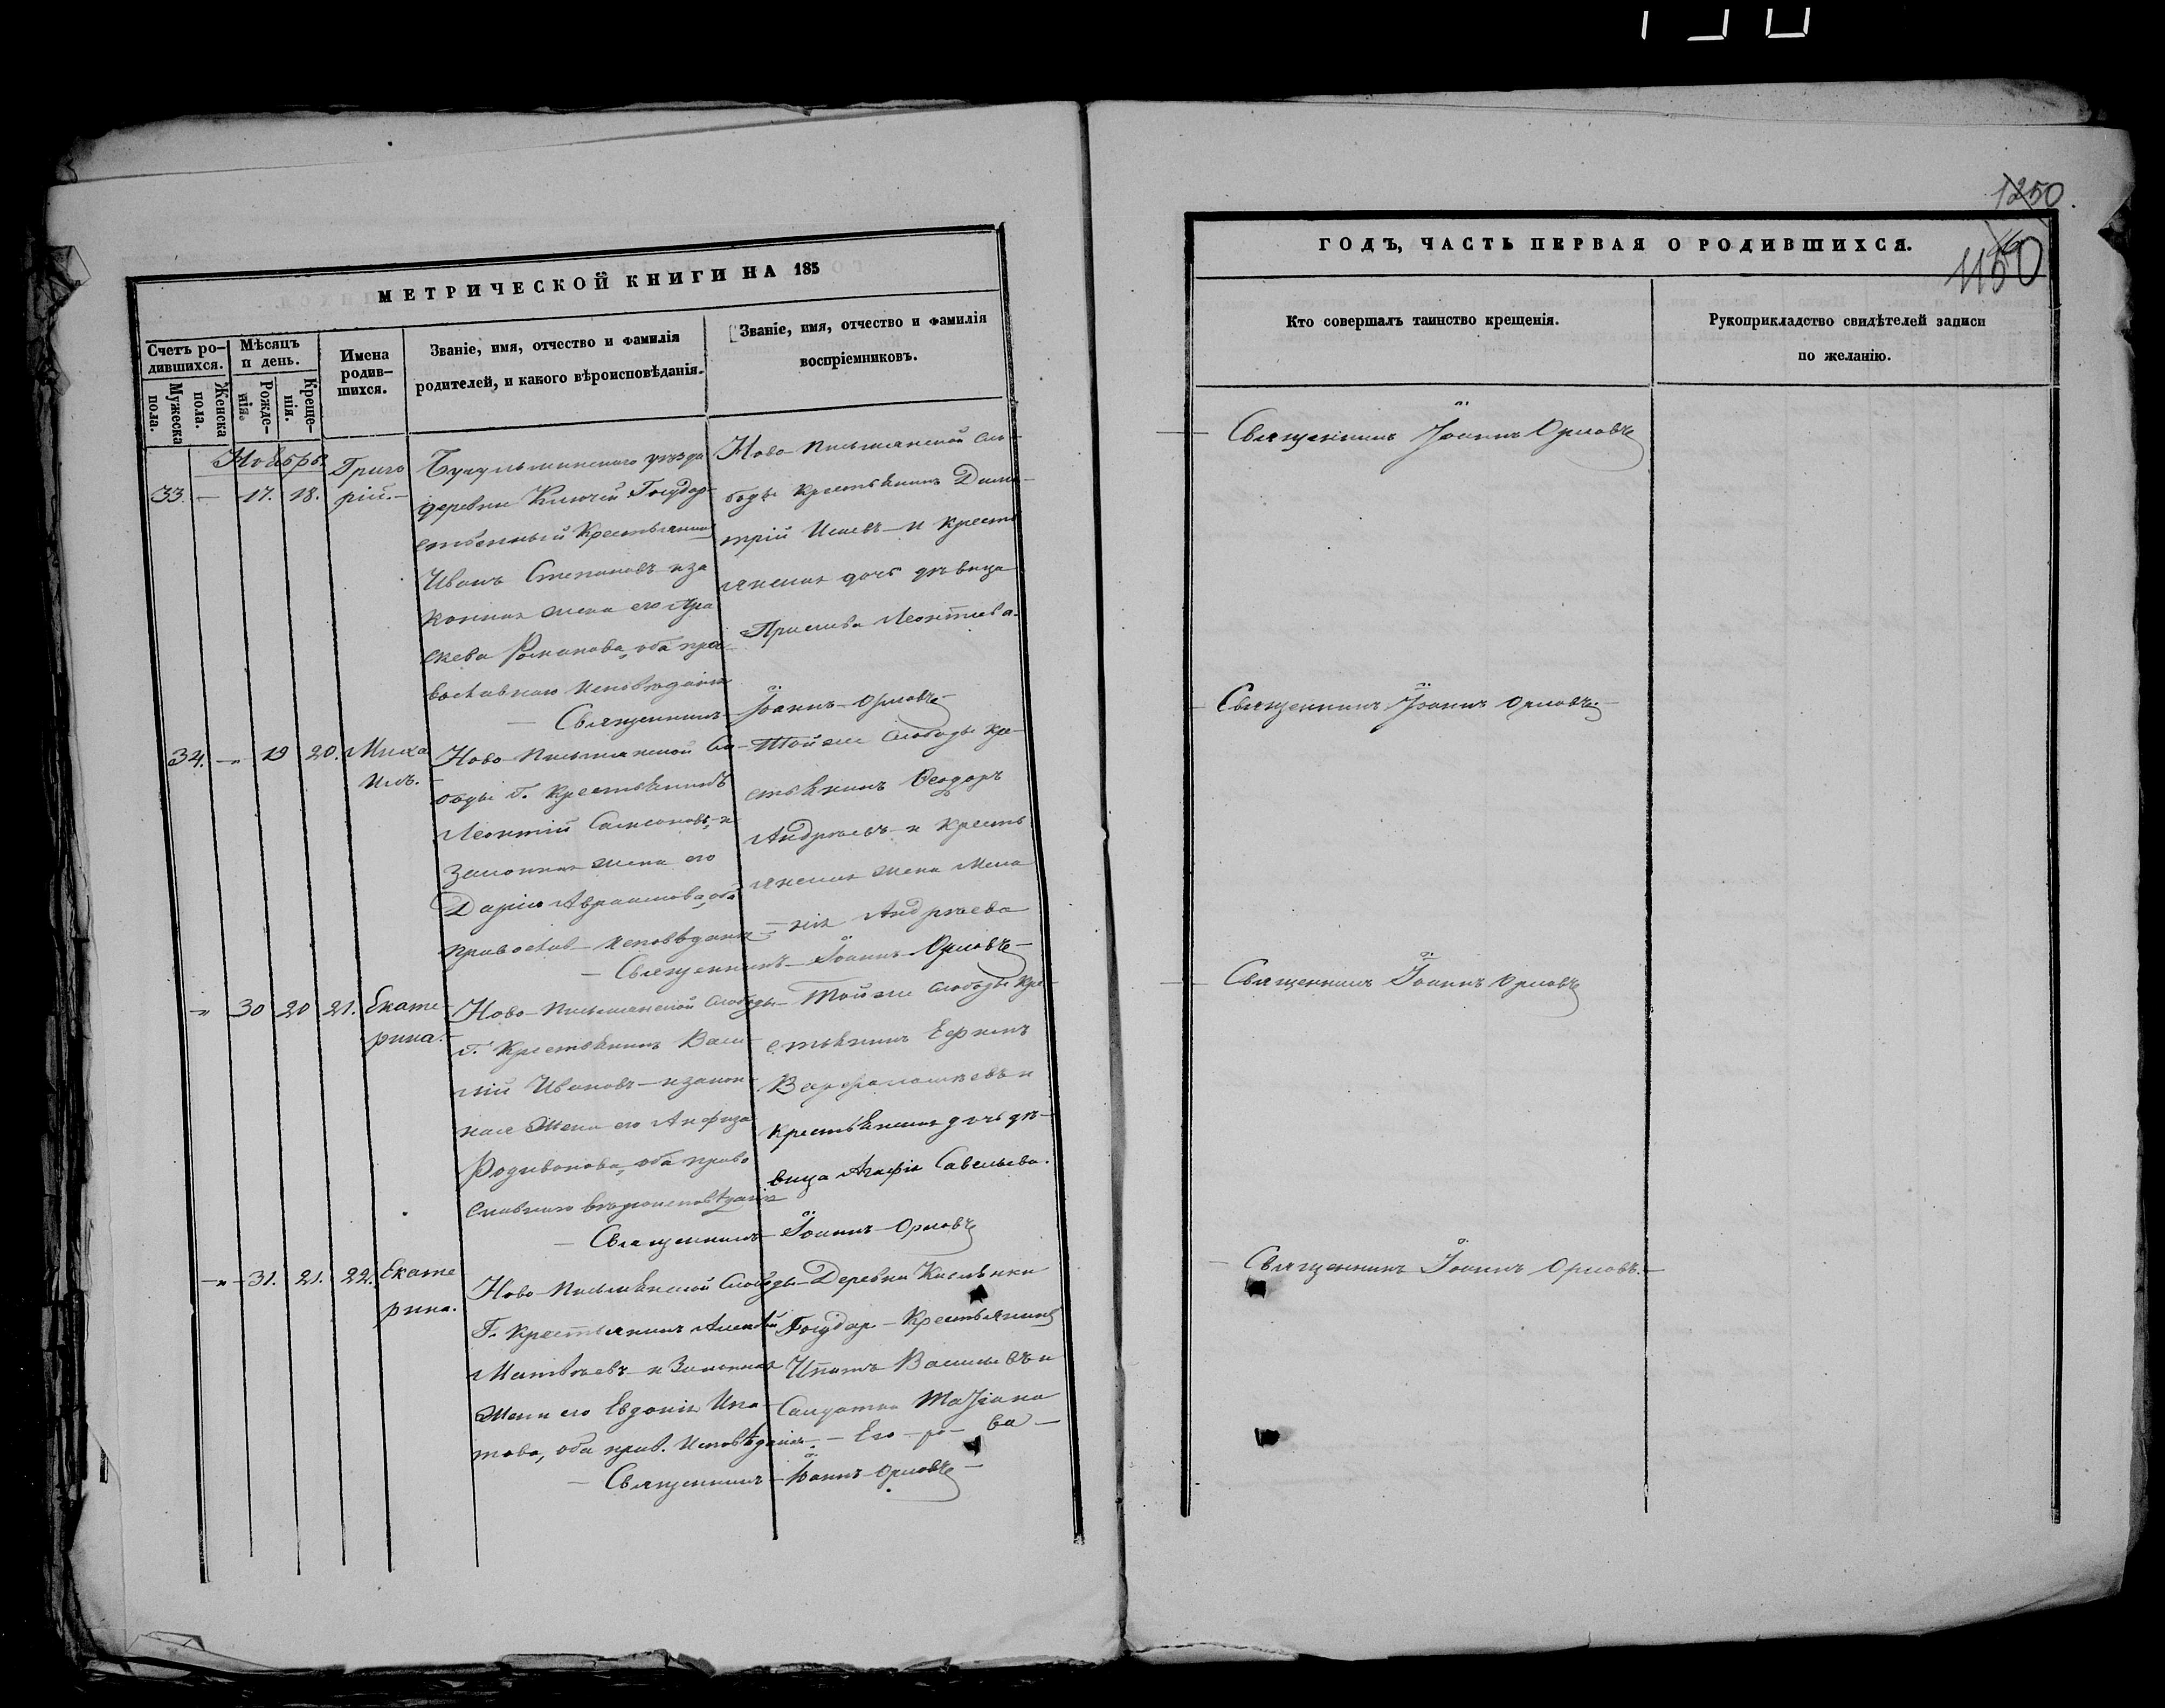 1250.
1150
МЕТРИЧЕСКОЙ КНИГИ НА 185
Счетъ ро-
дившихся.
Мужеска
пола.
Женска
пола.
Мѣсяцъ
и день.
Рожде-
нія.
Креще-
нія.
Имена
родив-
шихся.
Званіе, имя, отчество и фамилія
родителей, и какого вѣроисповѣданія.
Званіе, имя, отчество и фамилія
воспріемниковъ.
Ноябрь
33. — 17. 18.
Григо
рій.—
Бугульминскаго уѣзда
деревни Ключей Государ-
ственный Крестьянинъ
Иванъ Степановъ и за
конная жена его Пра
скева Романова, оба пра-
вославнаго исповѣданія
Ново-Письмянской Сло-
боды крестьянинъ Дими-
трій Исаевъ — и кресть
янская дочь дѣвица
Леонтіева.
— Священникъ Іоаннъ Орловъ —
34. — „ 19 20.
Миха
илъ.
Ново-Письмянской Сло-
боды Г. Крестьянинъ
Леонтій Самсоновъ, и
Законная жена его
Дарія Авраамова, оба
православ— исповѣданія
Той же Слободы кре-
стьянинъ Ѳеодоръ
Андреевъ и кресть
янская жена Мела
нія Андреева
— Священникъ — Іоаннъ Орловъ —
„ 30 20 21.
Екате-
рина.—
Ново-Письмянской Слободы
Г. Крестьянинъ Васи-
лій Ивановъ — и закон-
ная жена его Анфиза
Родивонова, оба право
славнаго вѣроисповѣданія
Той же Слободы кре-
стьянинъ Ефимъ
Варфаломеевъ и
крестьянская дочь дѣ-
вица Агафія Савельева.
— Священникъ Іоаннъ Орловъ
— „ — 31. 21. 22.
Екате
рина.
Ново-Письмянской Слободы
Г. Крестьянинъ Алексѣй
Матвѣевъ и Законная
жена его Евдокія Ипа-
това, оба прав. Исповѣданія.
Деревни Кислянки
Государ— Крестьянинъ
Ипатъ Васильевъ и
Солдатка
— Его — ро — ва —
— Священникъ — Іоаннъ Орловъ —
ГОДЪ, ЧАСТЬ ПЕРВАЯ О РОДИВШИХСЯ.
Кто совершалъ таинство крещенія.
Рукоприкладство свидѣтелей записи
по желанію.
Священникъ Іоаннъ Орловъ
Священникъ Іоаннъ Орловъ.—
Священникъ Іоаннъ Орловъ
Священникъ Іоаннъ Орловъ.—